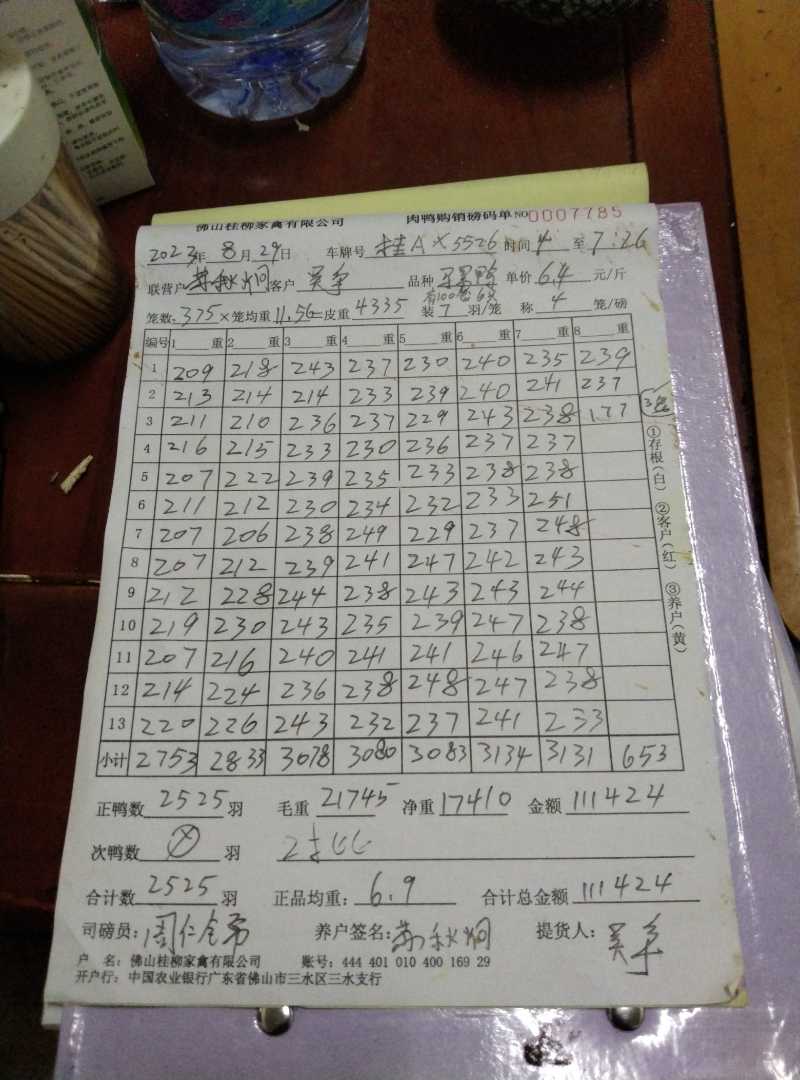 佛山桂柳家禽有限公司 肉鸭购销磅码单 NO 0007785
2023年 8月 29日 车牌号 桂A X5526 时间 4 至 7:26
联营户 客户 吴争 品种 单价 6.4 元/斤
有100笼6只
笼数: 375 × 笼均重 11.56 皮重 4335 装 7 羽/笼 称 4 笼/磅
编号 1 重 2 重 3 重 4 重 5 重 6 重 7 重 8 重
1 209 218 243 237 230 240 235 239
2 213 214 214 233 239 240 241 237
3 211 210 236 237 229 243 238 177 3笼
4 216 215 233 230 236 237 237
5 207 222 239 235 233 238 238
6 211 212 230 234 232 233 251
7 207 206 238 249 229 237 248
8 207 212 239 241 247 242 243
9 212 228 244 238 243 243 244
10 219 230 243 235 239 247 238
11 207 216 240 241 241 246 247
12 214 224 236 238 248 247 238
13 220 226 243 232 237 241 233
小计 2753 2833 3078 3080 3083 3134 3131 653
①存根(白) ②客户(红) ③养户(黄)
正鸭数 2525 羽 毛重 21745 净重 17410 金额 111424
次鸭数 羽
合计数 2525 羽 正品均重: 6.9 合计总金额 111424
司磅员: 养户签名: 提货人: 吴争
户 名: 佛山桂柳家禽有限公司 账号: 444 401 010 400 169 29
开户行: 中国农业银行广东省佛山市三水区三水支行